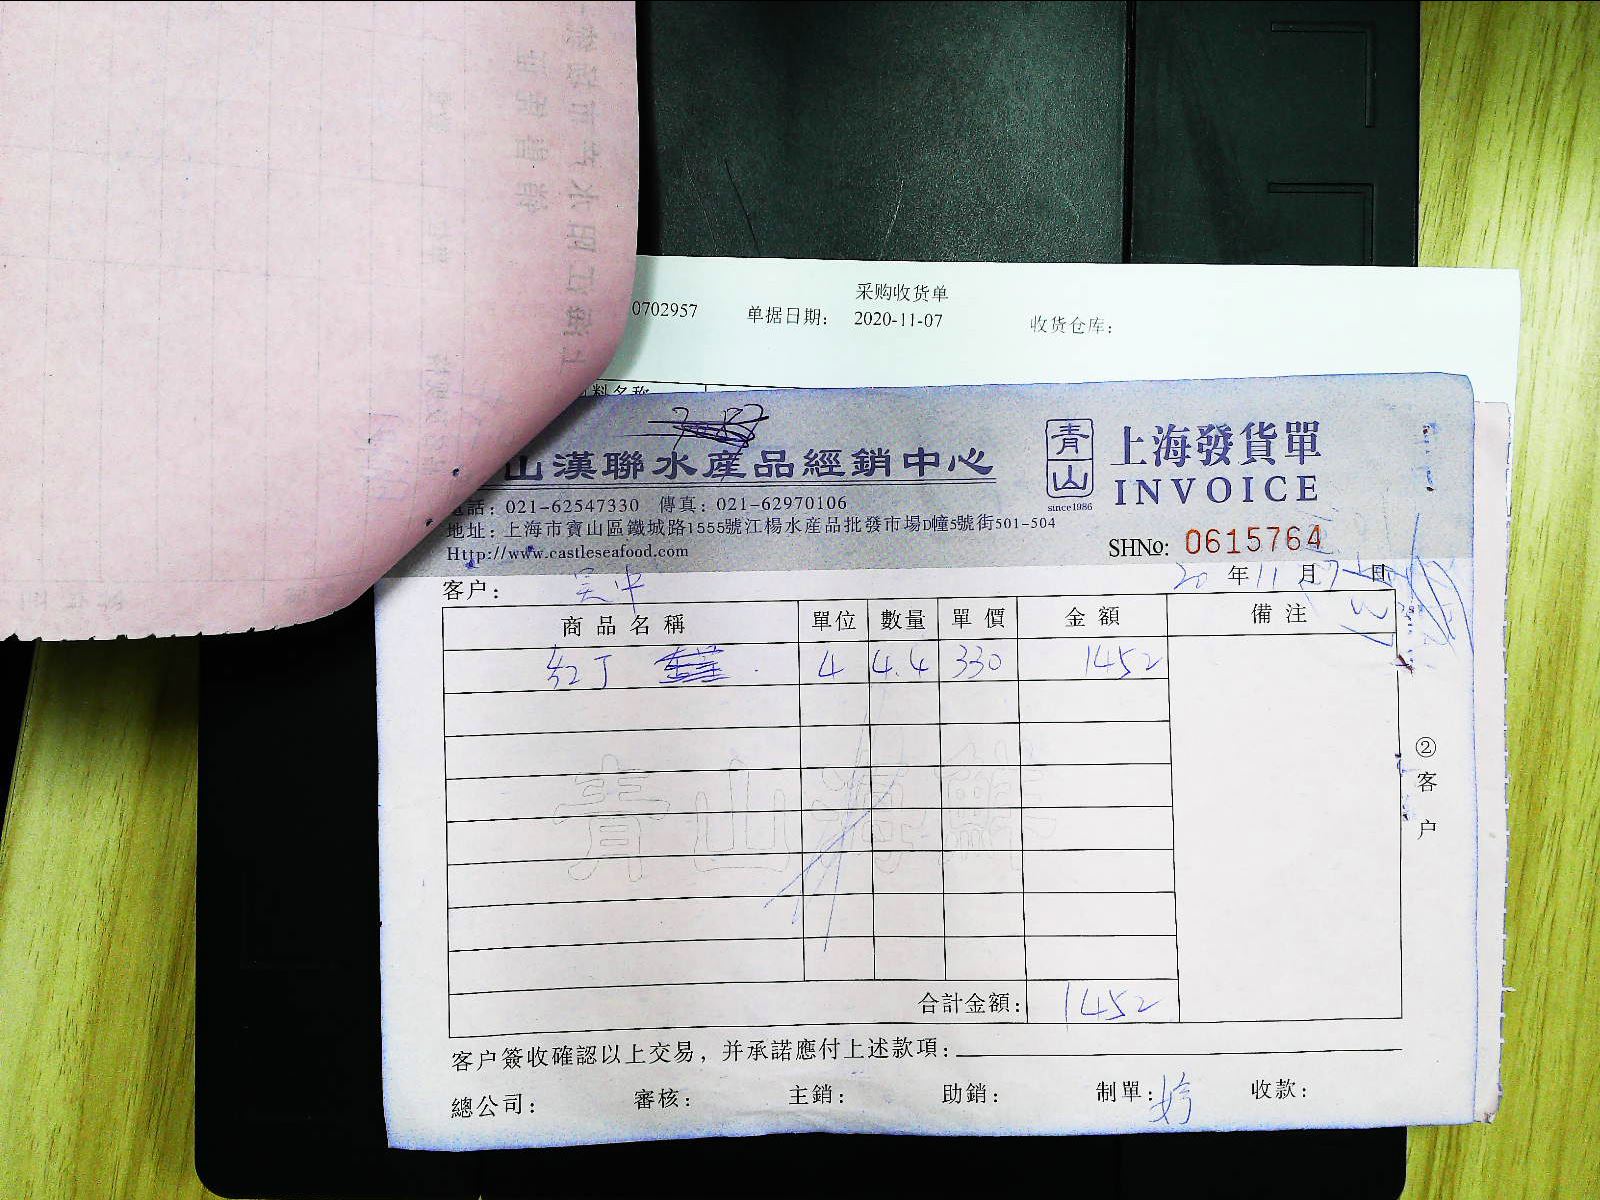 采购收货单
0702957 单据日期: 2020-11-07 收货仓库:
料名称
山漢聯水産品經銷中心
電話: 021-62547330 傳真: 021-62970106
地址: 上海市寶山區鐵城路1555號江楊水産品批發市場D幢5號街501-504
Http://www.castleseafood.com
青山
since1986
上海發貨單
INVOICE
SHNo: 0615764
客户: 吴中 20 年 11 月 7 日
商品名稱 單位 數量 單價 金額 備注
红丁 4 4.4 330 1452
青山海鮮
合計金額: 1452
②客户
客户簽收確認以上交易，并承諾應付上述款項:
總公司: 審核: 主銷: 助銷: 制單: 婷 收款: